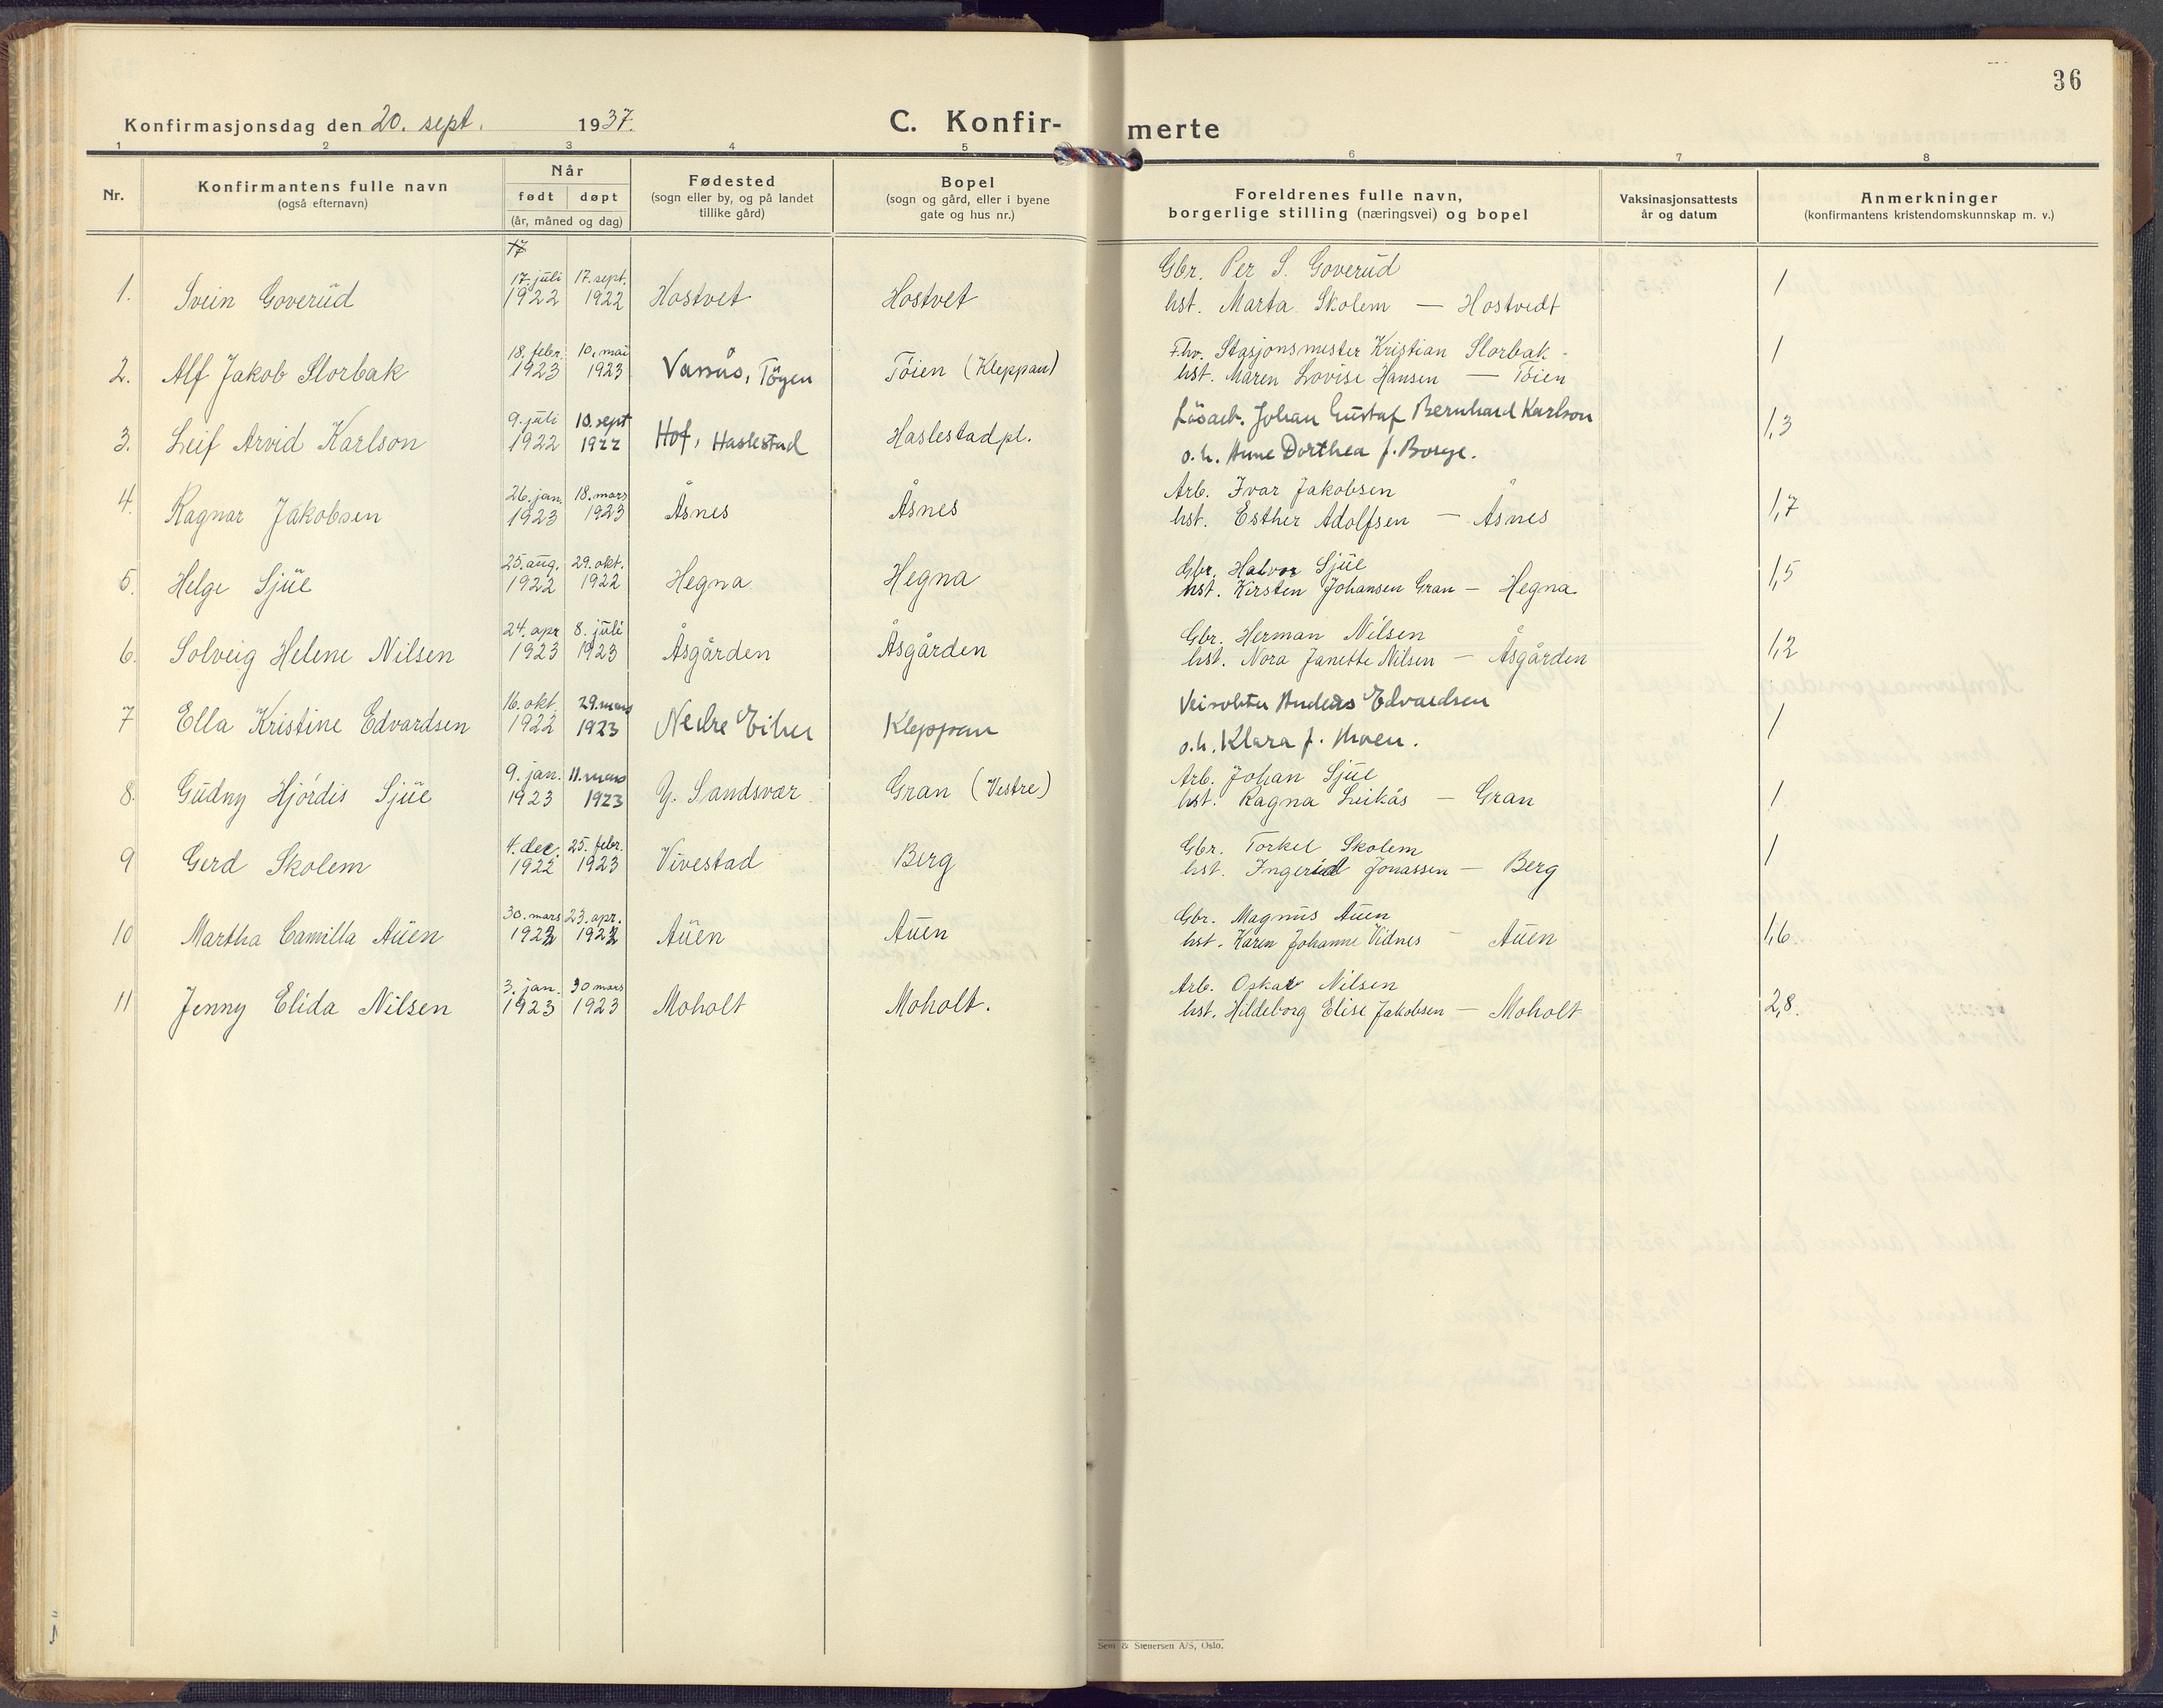 36
Konfirmasjonsdag den 20. sept. 1937.
C. Konfir-merte
1 2 3 4 5 6 7 8
Nr.
Konfirmantens fulle navn
(også efternavn)
Når
født døpt
(år, måned og dag)
Fødested
(sogn eller by, og på landet
tillike gård)
Bopel
(sogn og gård, eller i byene
gate og hus nr.)
Foreldrenes fulle navn,
borgerlige stilling (næringsvei) og bopel
Vaksinasjonsattests
år og datum
Anmerkninger
(konfirmantens kristendomskunnskap m. v.)
17
17. juli 17. sept. Gbr. Per S. Goverud
1. Svein Goverud 1922 1922 Hostvet Hostvet hst. Marta Skolem — Hostvedt 1
18. febr. 10. mai F.hv. Stasjonsmester Kristian Storbak -
2. Alf Jakob Storbak 1923 1923 Vassås, Töyen Töien (Kleppan) hst. Maren Lovise Hansen — Töien 1
9. juli 10. sept Johan Gustaf Bernhard Karlson
3. Leif Arvid Karlson 1922 1922 Hof, Haslestad Haslestad pl. o.h. Anne Dorthea f. Borge. 1,3
26. jan. 18. mars Arb. Ivar Jakobsen
4. Ragnar Jakobsen 1923 1923 Åsnes Åsnes hst. Esther Adolfsen — Åsnes 1,7
25. aug. 29. okt. Gbr. Halvor Sjue
5. Helge Sjue 1922 1922 Hegna Hegna hst. Kirsten Johansen Gran — Hegna 1,5
24. apr 8. juli Gbr. Herman Nilsen
6. Solveig Helene Nilsen 1923 1923 Åsgården Åsgården hst. Nora Janette Nilsen — Åsgården 1,2
16. okt. 29. mars Veivokter Anders Edvardsen
7 Ella Kristine Edvardsen 1922 1923 Nedre Eiker Kleppan o.h. Klara f. Moen. 1
9. jan. 11. mars Arb. Johan Sjue
8. Gudny Hjördis Sjue 1923 1923 Y. Sandsvær Gran (Vestre) hst. Ragna Leikås — Gran 1
4. dec. 25. febr. Gbr. Torkel Skolem
9 Gerd Skolem 1922 1923 Vivestad Berg hst. Ingerid Jonassen — Berg 1
30. mars 23. apr. Gbr. Magnus Auen
10 Martha Camilla Auen 1922 1922 Auen Auen hst. Karen Johanne Vidnes — Auen 1,6
3. jan. 30 mars Arb. Oskar Nilsen
11 Jenny Elida Nilsen 1923 1923 Moholt Moholt. hst. Hildeborg Elise Jakobsen — Moholt 2,8.
Sem & Stenersen A/S, Oslo.